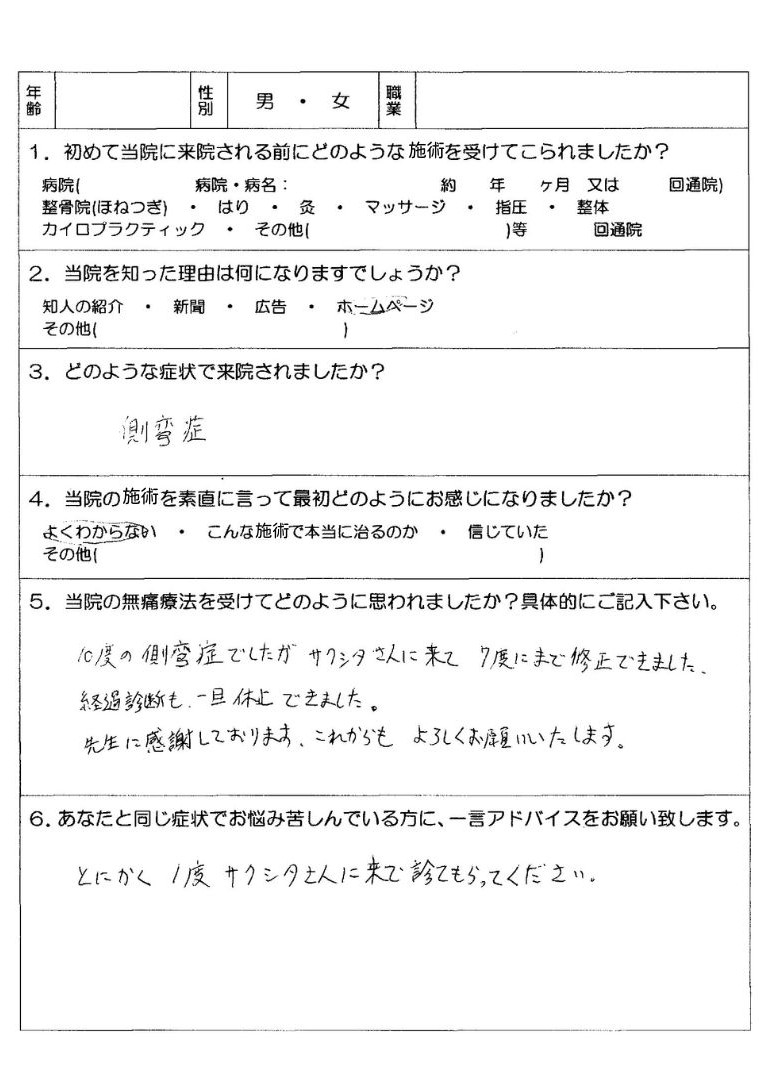 年齢 性別 男 ・ 女 職業
1．初めて当院に来院される前にどのような施術を受けてこられましたか？
病院( 病院・病名： 約 年 ヶ月 又は 回通院)
整骨院(ほねつぎ) ・ はり ・ 灸 ・ マッサージ ・ 指圧 ・ 整体
カイロプラクティック ・ その他( )等 回通院
2．当院を知った理由は何になりますでしょうか？
知人の紹介 ・ 新聞 ・ 広告 ・ ホームページ
その他( )
3．どのような症状で来院されましたか？
側弯症
4．当院の施術を素直に言って最初どのようにお感じになりましたか？
よくわからない ・ こんな施術で本当に治るのか ・ 信じていた
その他( )
5．当院の無痛療法を受けてどのように思われましたか？具体的にご記入下さい。
10度の側弯症でしたが サクシタさんに来て 7度にまで修正できました、
経過診断も、一旦休止できました。
先生に感謝しております、これからも よろしくお願いいたします。
6．あなたと同じ症状でお悩み苦しんでいる方に、一言アドバイスをお願い致します。
とにかく 1度 サクシタさんに来て診てもらってください。